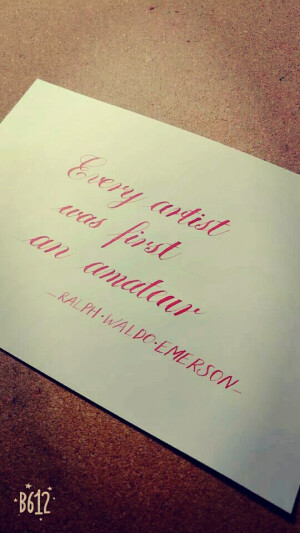 Every artist
was first
an amateur
_RALPH·WALDO·EMERSON_
B612